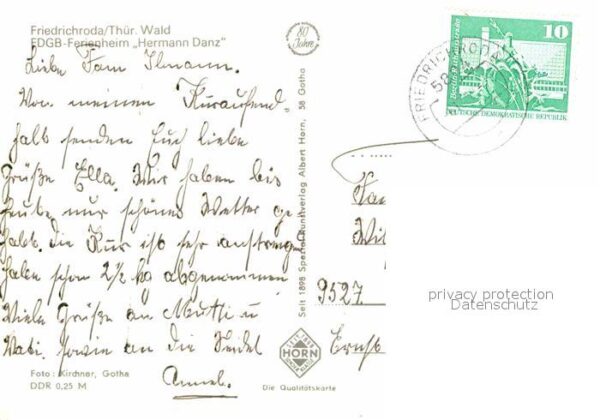 Friedrichroda/Thür. Wald
FDGB-Ferienheim „Hermann Danz"
80 Jahre
Liebe Fam Ilmann.
Von meinem Kuraufent
halt senden Euch liebe
Grüße Ella. Wir haben bis
heute nur schönes Wetter ge
habt. die Kur ist sehr anstrengen
haben schon 2½ kg abgenommen
Viele Grüße an Mutti u
sowie an die Seidel
Foto: Kirchner, Gotha
DDR 0,25 M
Seit 1898 Spezial-Kunstverlag Albert Horn, 58 Gotha
HORN
Die Qualitätskarte
FRIEDRICHRODA
58
10
DEUTSCHE DEMOKRATISCHE REPUBLIK
9527
privacy protection
Datenschutz